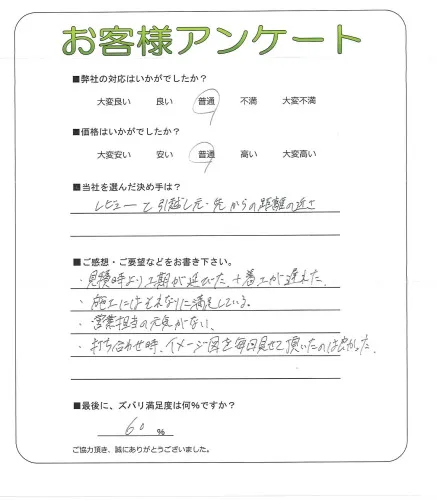 お客様アンケート
■弊社の対応はいかがでしたか？
大変良い 良い 普通 不満 大変不満
■価格はいかがでしたか？
大変安い 安い 普通 高い 大変高い
■当社を選んだ決め手は？
レビューと引越し元・先からの距離の近さ
■ご感想・ご要望などをお書き下さい。
・見積時より工期が延びた＋着工が遅れた.
・施工にはそれなりに満足している。
・営業担当の元気がない、
・打ち合わせ時、イメージ図を毎回見せて頂いたのは良かった.
■最後に、ズバリ満足度は何%ですか？
60 %
ご協力頂き、誠にありがとうございました。